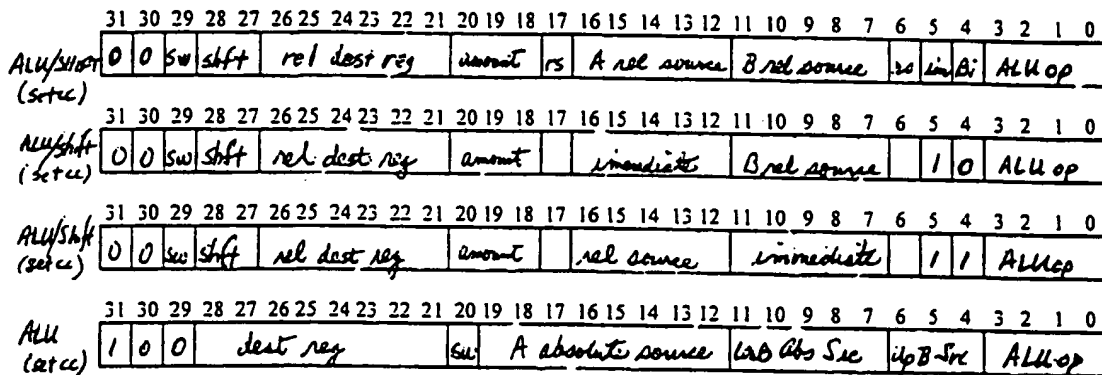 31 30 29 28 27 26 25 24 23 22 21 20 19 18 17 16 15 14 13 12 11 10 9 8 7 6 5 4 3 2 1 0
ALU/Shift 0 0 sw shft rel dest reg amount rs A rel source B rel source im Bi ALU op
(setcc)
31 30 29 28 27 26 25 24 23 22 21 20 19 18 17 16 15 14 13 12 11 10 9 8 7 6 5 4 3 2 1 0
ALU/Shift 0 0 sw shft rel dest reg amount immediate B rel source 1 0 ALU op
(setcc)
31 30 29 28 27 26 25 24 23 22 21 20 19 18 17 16 15 14 13 12 11 10 9 8 7 6 5 4 3 2 1 0
ALU/Shft 0 0 sw shft rel dest reg amount rel source immediate 1 1 ALUop
(setcc)
31 30 29 28 27 26 25 24 23 22 21 20 19 18 17 16 15 14 13 12 11 10 9 8 7 6 5 4 3 2 1 0
ALU 1 0 0 dest reg sw A absolute source B Abs Src B Src ALU op
(setcc)